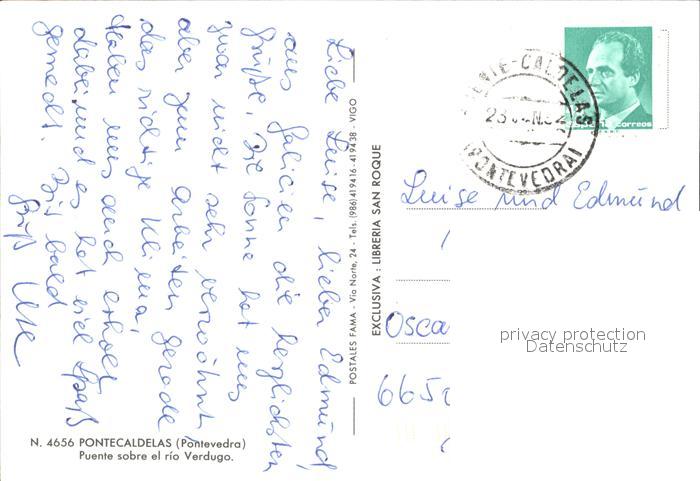 Liebe Luise, lieber Edmund,
aus Galicien die herzlichsten
Grüße. Die Sonne hat uns
zwar nicht sehr verwöhnt,
aber zum Arbeiten gerade
das richtige Klima,
Haben uns auch erholt
dabei und es hat viel Spaß
gemacht. Bis bald
Gruß Ute
N. 4656 PONTECALDELAS (Pontevedra)
Puente sobre el río Verdugo.
POSTALES FAMA - Via Norte, 24 - Tels. (986) 419416 - 419438 - VIGO
EXCLUSIVA : LIBRERIA SAN ROQUE
correos
NTE-CALDELAS
(PONTEVEDRA)
Luise und Edmund
Osca
665
privacy protection
Datenschutz